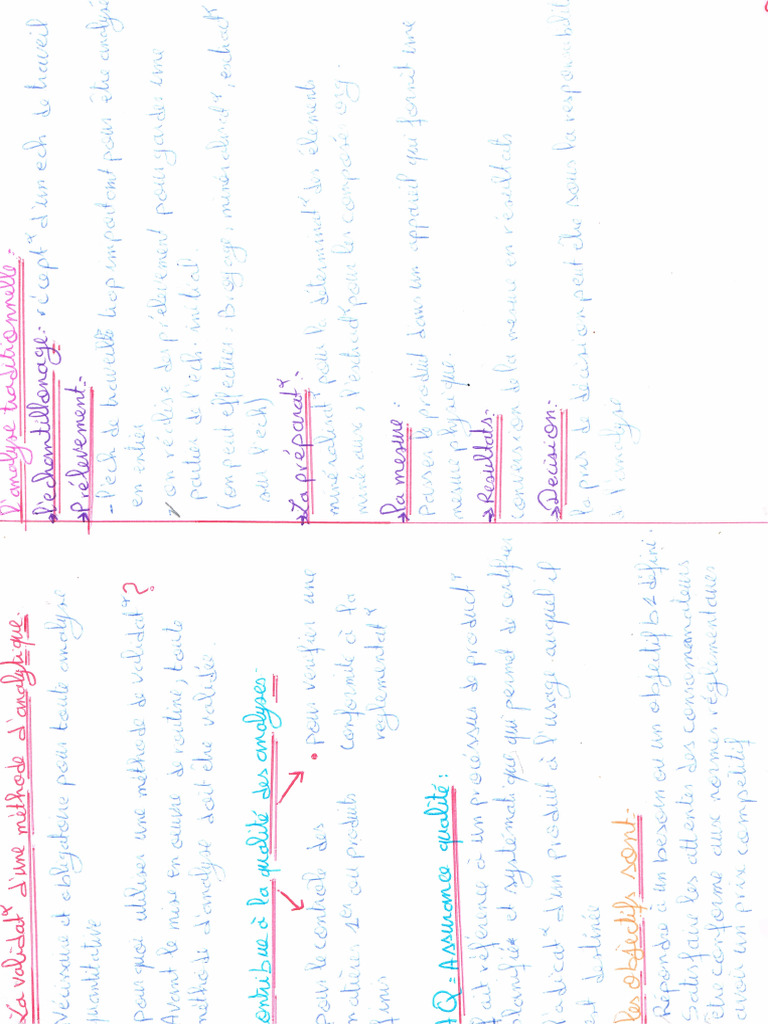 La validat° d'une méthode d'analytique.
Nécissaire et obligatoire pour toute analyse
quantitative
pour quoi utiliser une méthode de validat° ?
Avant le mise en œuvre de routine, toute
méthode d'analyse doit être validée.
contribue à la qualité des analyses:
pour le controle des
matières 1ères ou produits
finis
• pour vérifier une
conformité à la
reglementat°
AQ = Assurance qualité:
Fait référence à un processus de product°
planifié et systématique qui permet de certifier
l'adicat° d'un produit à l'usage auquel il
est destinée
Les objectifs sont:
Répondre à un besoin ou un objectif b1 défini
Satisfaire les attentes des consommateurs
Etre conforme aux normes réglementaires
avoir un prix compétitif
D'analyse traditionnelle:
→ l'échantillonage: récept° d'un ech de travail
→ Prélevement:
- l'ech de travaille trop important pour être analysé
en entier
✓ on réalise des prélevement pour garder une
partie de l'ech initial.
(on peut effectuer: Broyage, minéralisat°, extract°
sur l'ech)
→ La préparat°:
minéralisat° pour la déterminat° des élements
minéraux, l'extract° pour les composés org.
→ La mesure:
Passer le produit dans un appareil qui fornit une
mesure physique.
→ Resultats:
conversion de la mesure en résultats
→ Decision:
la prise de décision peut être sous la responsabilité
d l'analyse